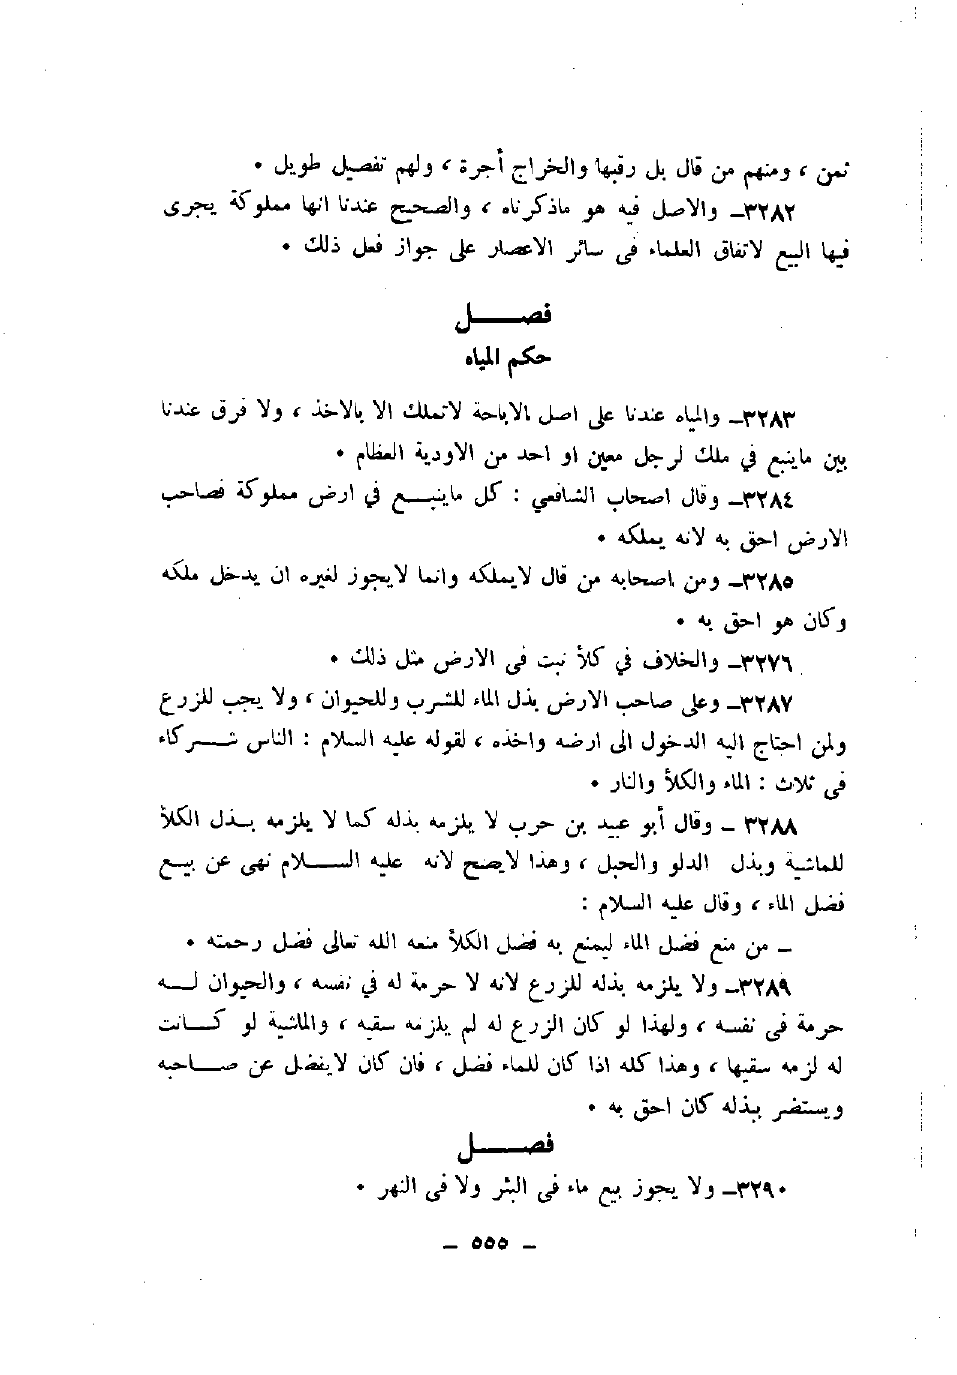 ثمن ، ومنهم من قال بل رقبها والخراج أجرة ، ولهم تفصيل طويل •
٣٢٨٢ــ والاصل فيه هو ماذكرناه ، والصحيح عندنا انها مملوكة يجرى
فيها البيع لاتفاق العلماء فى سائر الاعصار على جواز فعل ذلك •
فصـــــل
حكم المياه
٣٢٨٣ــ والمياه عندنا على اصل الاباحة لاتملك الا بالاخذ ، ولا فرق عندنا
بين ماينبع في ملك لرجل معين او احد من الاودية العظام •
٣٢٨٤ــ وقال اصحاب الشافعي : كل ماينبـــع في ارض مملوكة فصاحب
الارض احق به لانه يملكه •
٣٢٨٥ــ ومن اصحابه من قال لايملكه وانما لايجوز لغيره ان يدخل ملكه
وكان هو احق به •
٣٢٧٦ــ والخلاف في كلأ نبت فى الارض مثل ذلك •
٣٢٨٧ــ وعلى صاحب الارض بذل الماء للشرب وللحيوان ، ولا يجب للزرع
ولمن احتاج اليه الدخول الى ارضه واخذه ، لقوله عليه السلام : الناس شـــركاء
فى ثلاث : الماء والكلأ والنار •
٣٢٨٨ ــ وقال أبو عبيد بن حرب لا يلزمه بذله كما لا يلزمه بـذل الكلأ
للماشية وبذل الدلو والحبل ، وهذا لايصح لانه عليه الســـلام نهى عن بيــع
فضل الماء ، وقال عليه السلام :
ــ من منع فضل الماء ليمنع به فضل الكلأ منعه الله تعالى فضل رحمته •
٣٢٨٩ــ ولا يلزمه بذله للزرع لانه لا حرمة له في نفسه ، والحيوان لـــه
حرمة فى نفسه ، ولهذا لو كان الزرع له لم يلزمه سقيه ، والماشية لو كـــانت
له لزمه سقيها ، وهذا كله اذا كان للماء فضل ، فان كان لايفضل عن صـــاحبه
ويستضر ببذله كان احق به •
فصـــــل
٣٢٩٠ــ ولا يجوز بيع ماء فى البئر ولا فى النهر •
ــ ٥٥٥ ــ